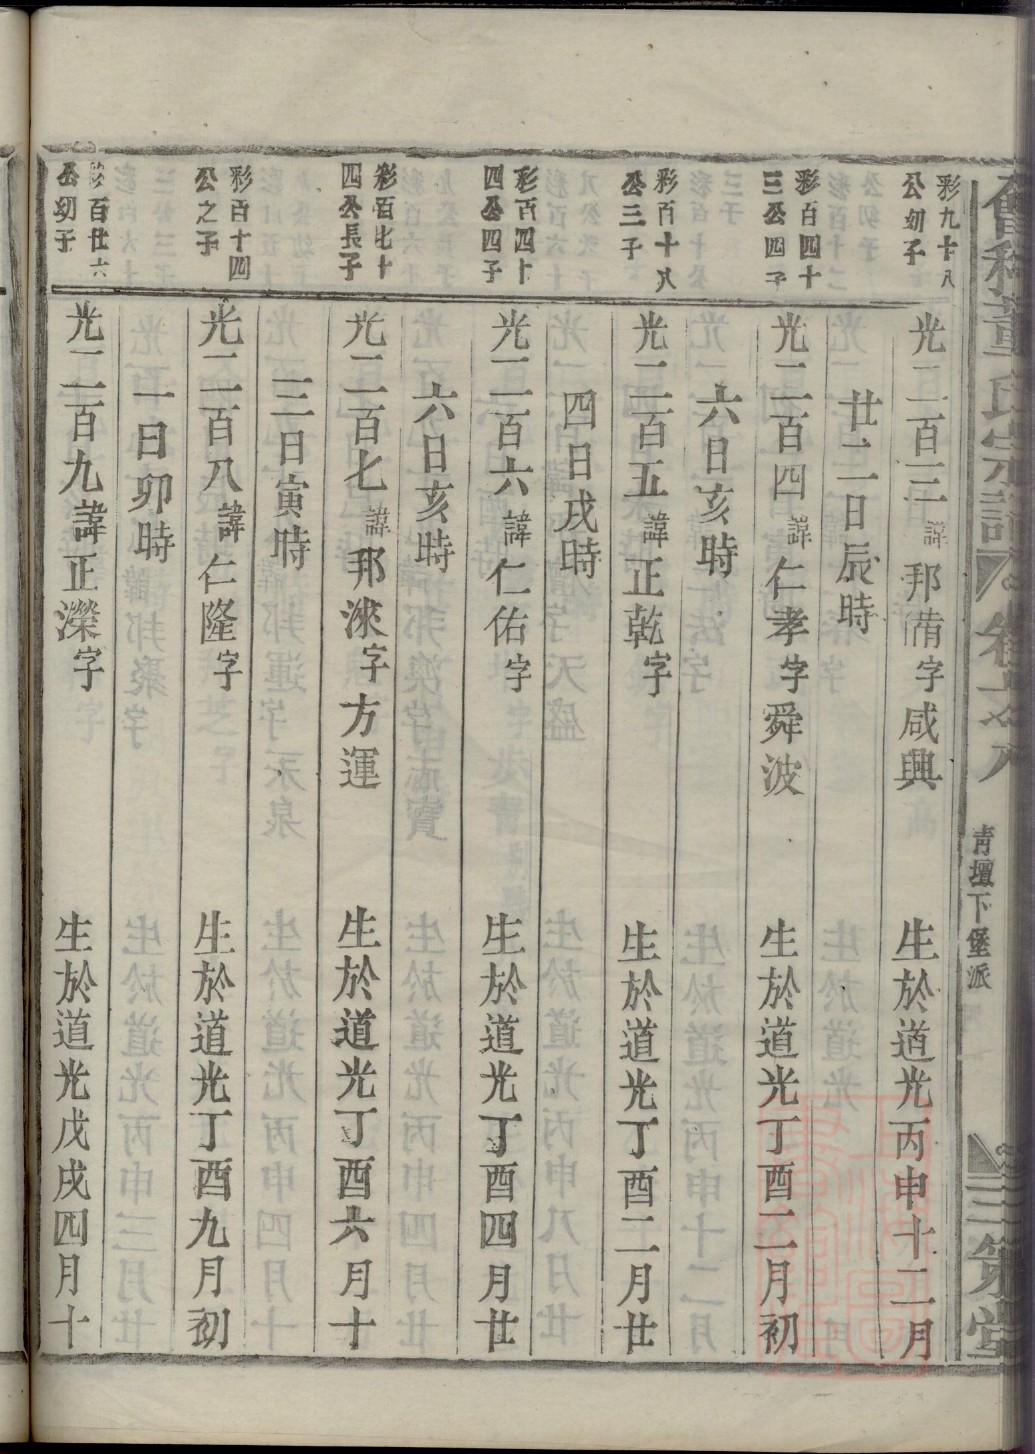 會稽董氏宗譜
青壇下堡派
三策堂
彩九十八
公幼子
光二百三諱邦備字咸興 生於道光丙申十二月
廿二日辰時
彩百四十
三公四子
光二百四諱仁孝字舜波 生於道光丁酉二月初
六日亥時
彩百十八
公三子
光二百五諱正乾字 生於道光丁酉二月廿
四日戌時
彩百四十
四公四子
光二百六諱仁佑字 生於道光丁酉四月廿
六日亥時
彩百七十
四公長子
光二百七諱邦淶字方運 生於道光丁酉六月十
三日寅時
彩百十四
公之子
光二百八諱仁隆字 生於道光丁酉九月初
一日卯時
彩百廿六
公幼子
光二百九諱正濚字 生於道光戊戌四月十